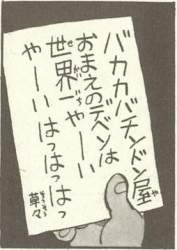 バカカバチンドン屋
おまえのデベソは
世界一やーい
やーいはっはっはっ
草々